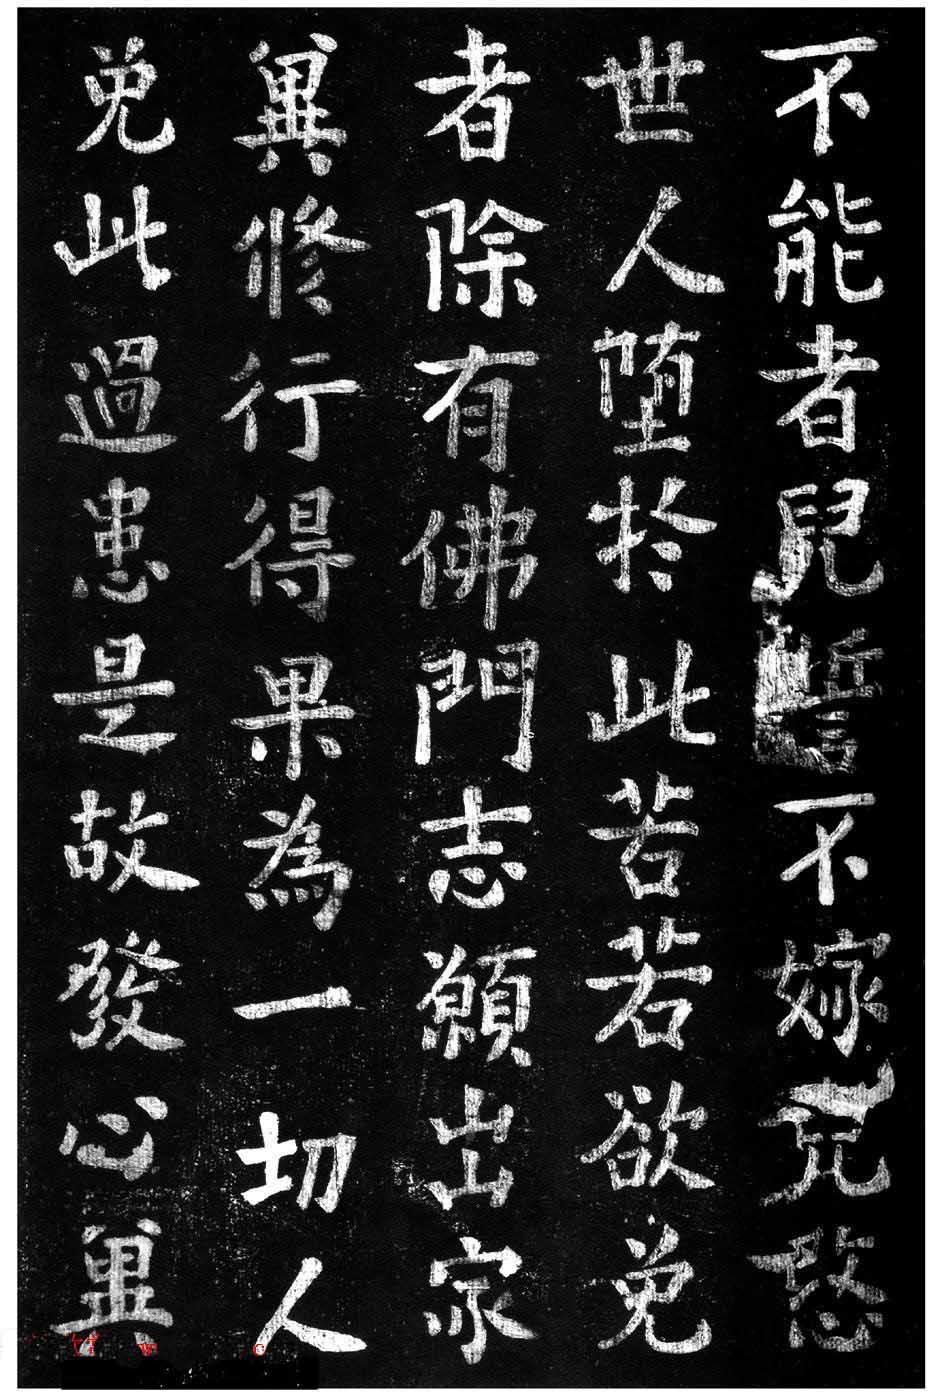 不能者兒誓不嫁兒愍
世人堕於此苦若欲免
者除有佛門志願出家
兾修行得果為一切人
免此過患是故發心兾